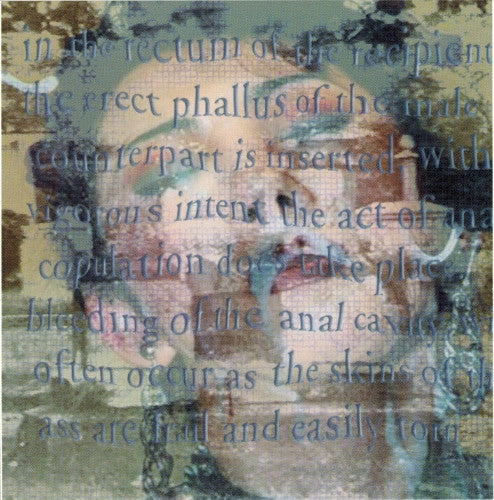 in the rectum of the recipient
the erect phallus of the male
counterpart is inserted, with
vigorous intent the act of ana
copulation does take place
bleeding of the anal cavity wi
often occur as the skins of th
ass are frail and easily torn